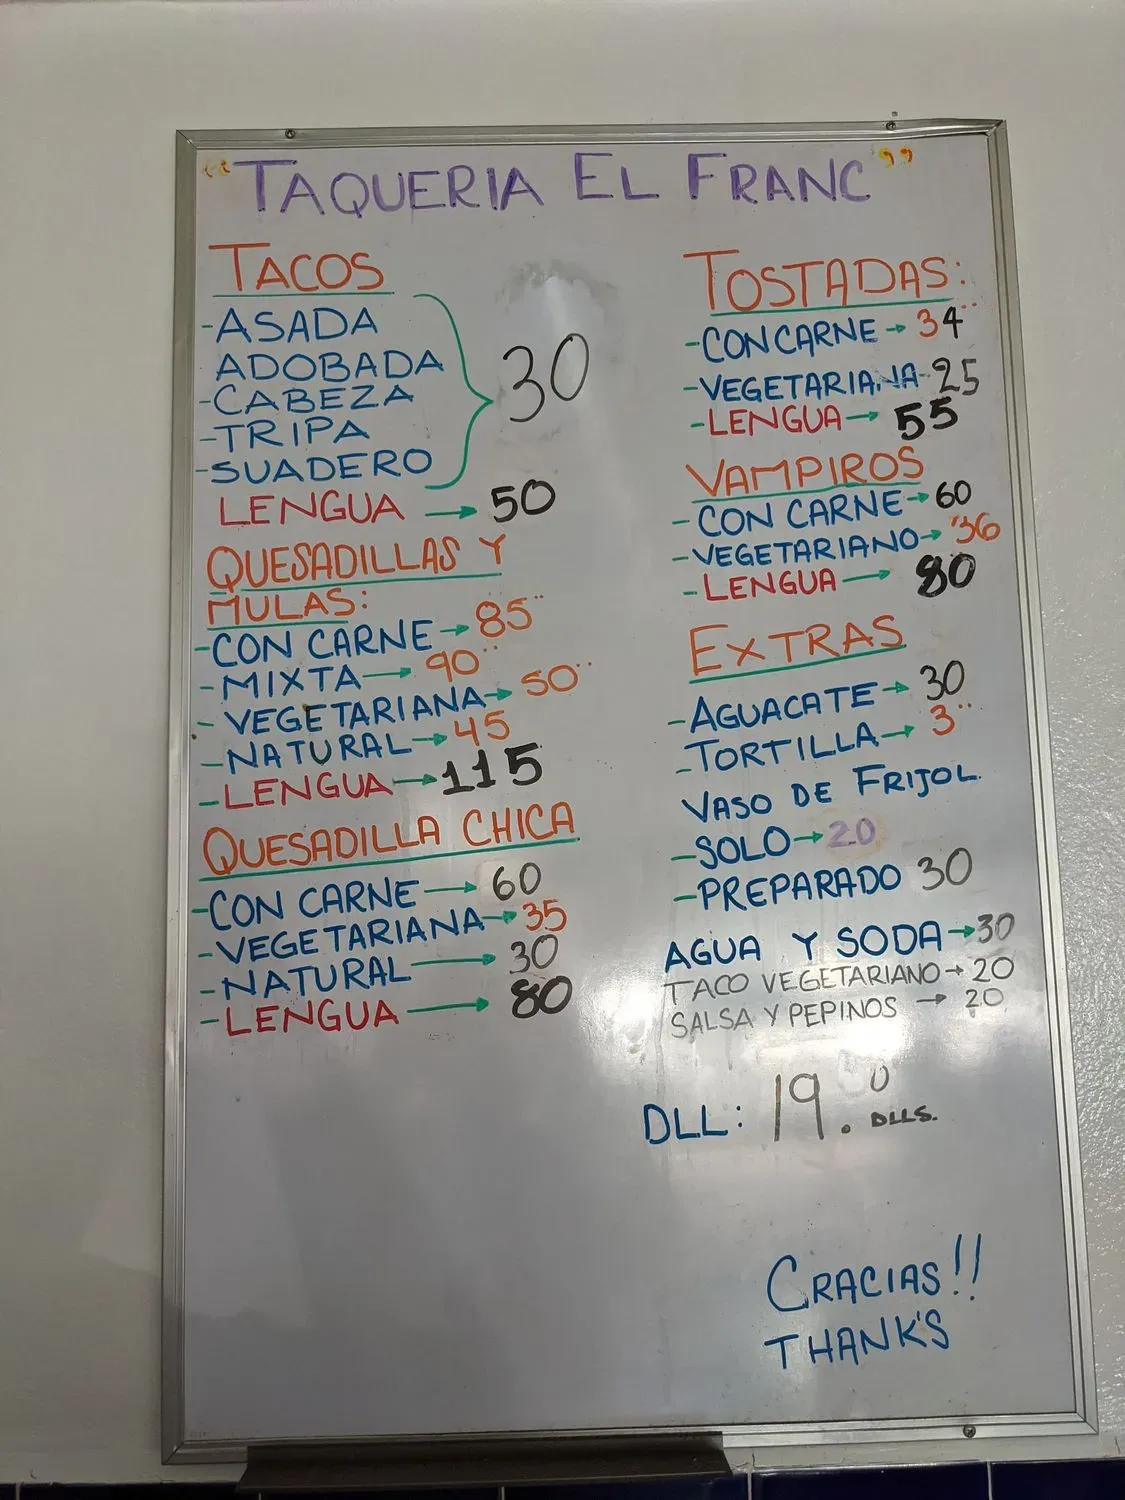 "TAQUERIA EL FRANC"
TACOS
-ASADA
ADOBADA
-CABEZA
-TRIPA
-SUADERO
30
LENGUA → 50
QUESADILLAS Y
MULAS:
-CON CARNE → 85
-MIXTA → 90
- VEGETARIANA → 50
-NATURAL → 45
-LENGUA → 115
QUESADILLA CHICA
-CON CARNE → 60
-VEGETARIANA → 35
-NATURAL → 30
-LENGUA → 80
TOSTADAS:
-CON CARNE → 34
-VEGETARIANA - 25
-LENGUA → 55
VAMPIROS
- CON CARNE → 60
-VEGETARIANO → 36
- LENGUA → 80
EXTRAS
-AGUACATE → 30
-TORTILLA → 3
VASO DE FRIJOL.
-SOLO → 20
-PREPARADO 30
AGUA Y SODA → 30
TACO VEGETARIANO → 20
SALSA Y PEPINOS → 20
DLL: 19.0 DLLS.
GRACIAS!!
THANK'S